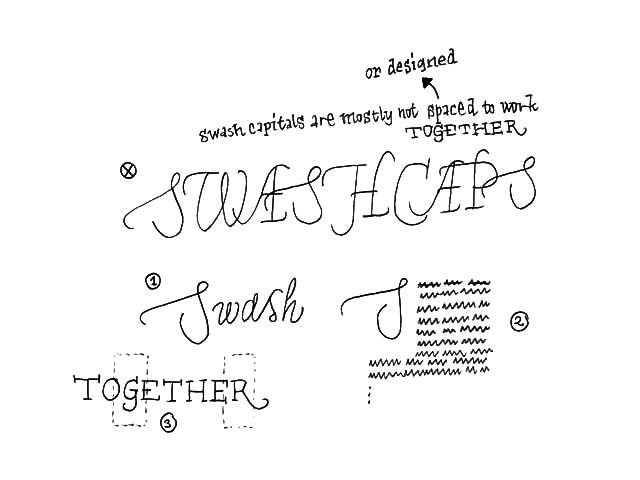 or designed
swash capitals are mostly not spaced to work
TOGETHER
X
SWASHCAPS
1
Swash
S
2
TOGETHER
3